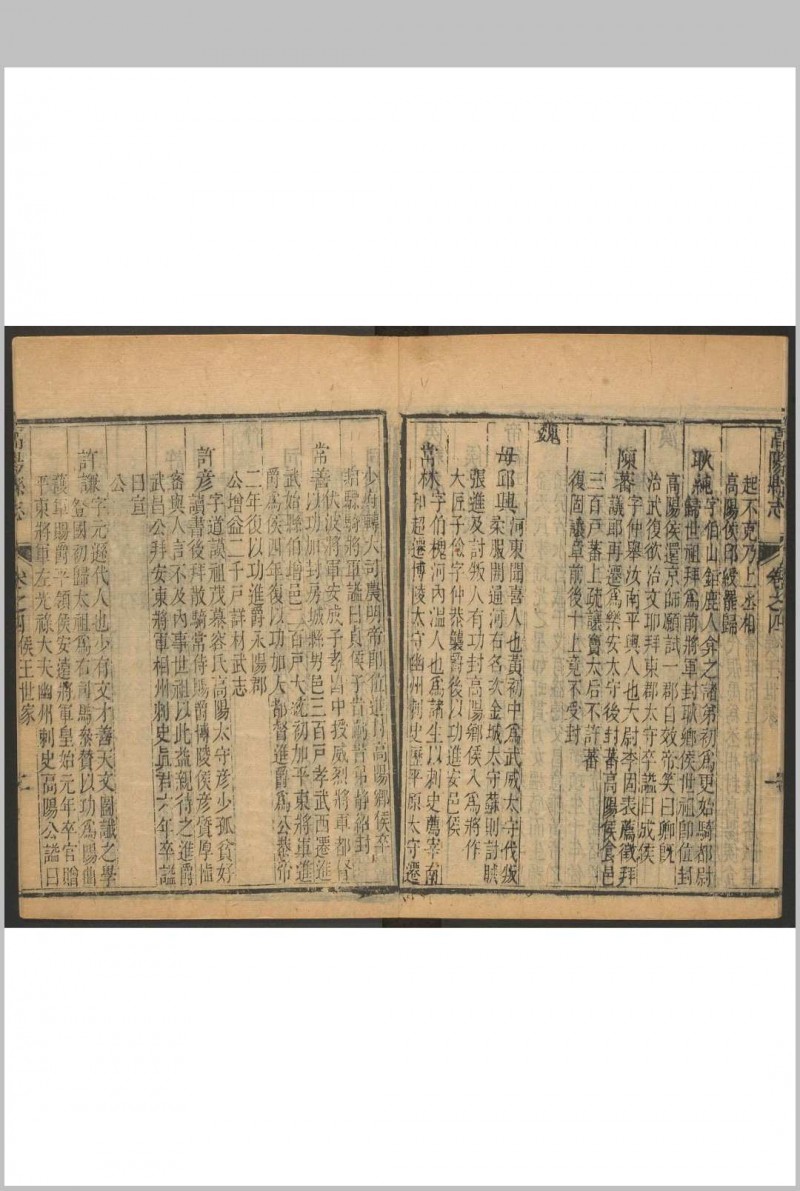 起不克乃上丞相
高陽侯印綬罷歸
耿純
字伯山鉅鹿人弇之諸弟初為更始騎都尉
歸世祖拜為前將軍封耿鄉侯世祖即位封
高陽侯還京師願試一郡自效帝笑曰卿既
治武復欲治文耶拜東郡太守卒諡曰成侯
陳蕃
字仲舉汝南平輿人也大尉李固表薦徵拜
議郎再遷為樂安太守後封蕃高陽侯食邑
三百戶蕃上疏讓竇太后不許蕃
復固讓章前後十上竟不受封
魏
毋邱興
河東聞喜人也黃初中為武威太守伐叛
柔服開通河右名次金城太守蘇則討賊
張進及討叛人有功封高陽鄉侯入為將作
大匠子儉字仲恭襲爵後以功進安邑侯
常林
字伯槐河內溫人也為諸生以刺史薦宰南
和超遷博陵太守幽州刺史歷平原太守遷
高陽縣志 卷之四
少府轉大司農明帝即位進封高陽鄉侯卒
贈驃騎將軍諡曰貞侯子
伏波將軍安成子孝昌中授威烈將軍都督
常善
以功加封房城縣男邑三百戶孝武西遷進
武始縣伯增邑二百戶大統初加平東將軍進
爵為侯四年復以功加大都督進爵為公恭帝
二年後以功進爵永陽郡
公增益二千戶詳材武志
許彥
字道謨祖茂慕容氏高陽太守彥少孤貧好
讀書後拜散騎常侍賜爵博陵侯彥質厚慎
密與人言不及內事世祖以此益親待之進爵
武昌公拜安東將軍相州刺史真君六年卒諡
曰宣
公
許謙
字元遜代人也少有文才善天文圖讖之學
登國初歸太祖為右司馬參贊以功為陽曲
護軍賜爵平領侯安遠將軍皇始元年卒官贈
平東將軍左光祿大夫幽州刺史高陽公諡曰
高陽縣志 卷之四 侯王世家 九